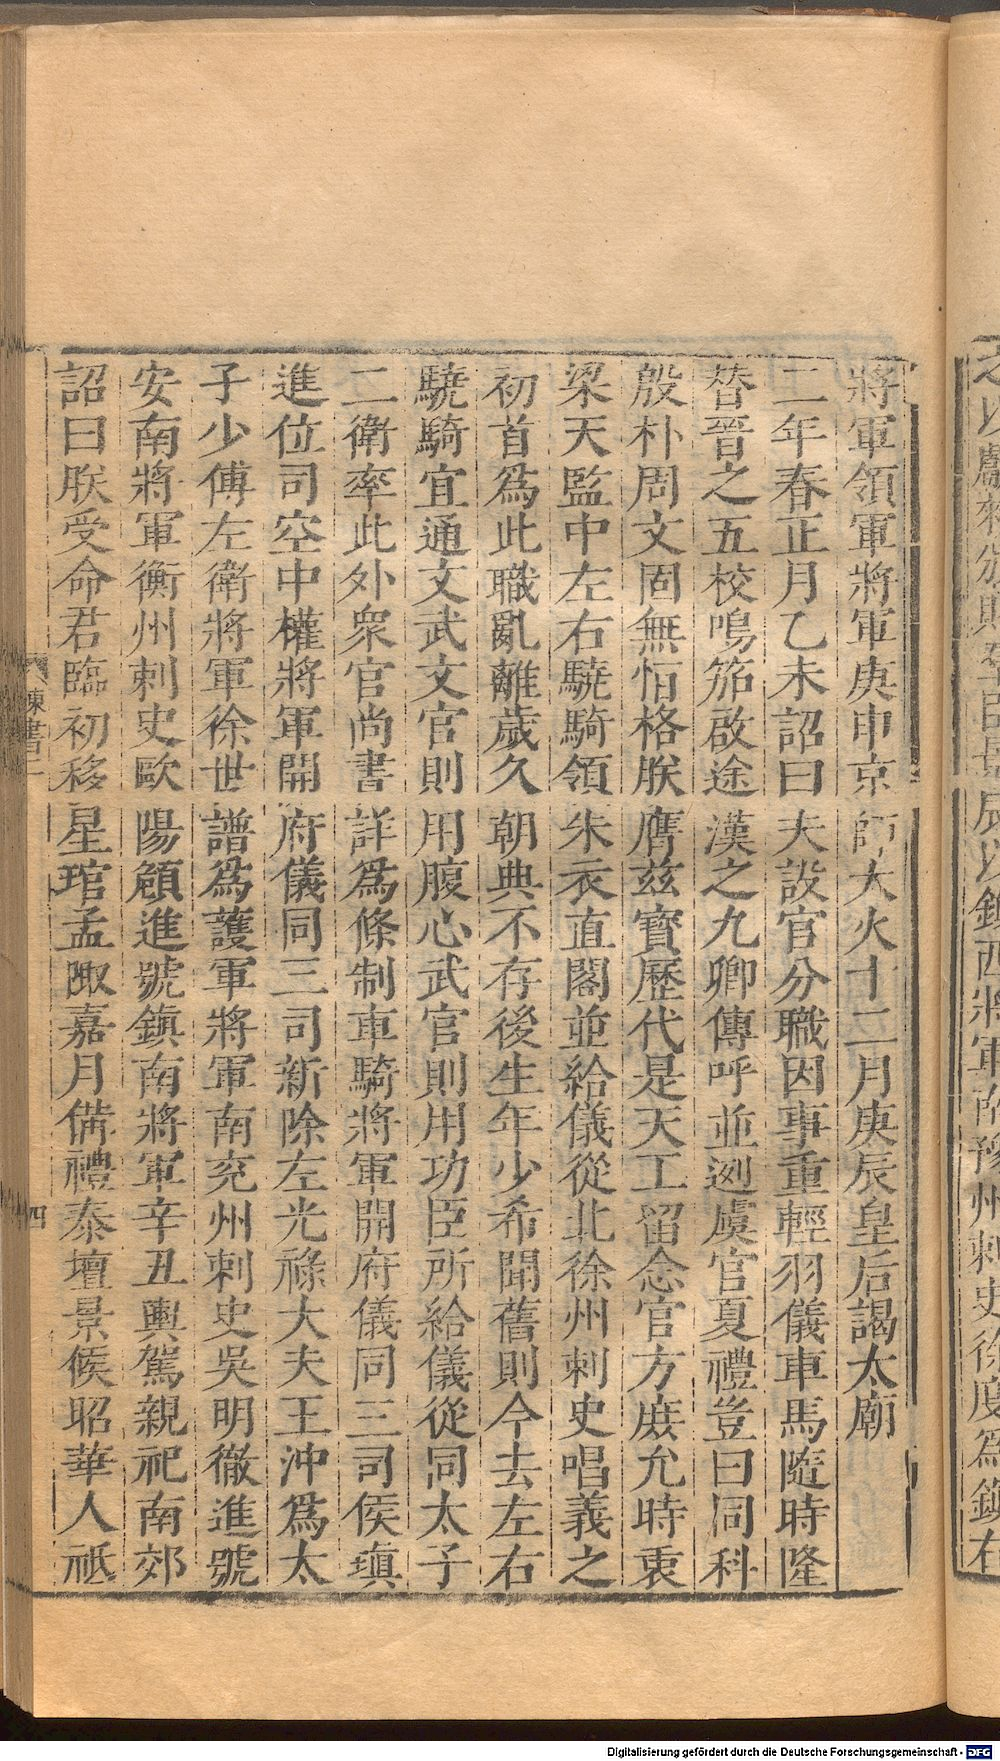 將軍領軍將軍庚申京師大火十二月庚辰皇后謁太廟
二年春正月乙未詔曰夫設官分職因事重輕羽儀車馬隨時隆
替晉之五校鳴笳啟途漢之九卿傳呼並迾虞官夏禮豈曰同科
殷朴周文固無恒格朕膺茲寶歷代是天工留念官方庶允時衷
梁天監中左右驍騎領朱衣直閤並給儀從北徐州刺史唱義之
初首為此職亂離歲久朝典不存後生年少希聞舊則今去左右
驍騎宜通文武文官則用腹心武官則用功臣所給儀從同太子
二衛率此外衆官尚書詳為條制車騎將軍開府儀同三司侯瑱
進位司空中權將軍開府儀同三司新除左光祿大夫王沖為太
子少傅左衛將軍徐世譜為護軍將軍南兖州刺史吳明徹進號
安南將軍衡州刺史歐陽頠進號鎮南將軍辛丑輿駕親祀南郊
詔曰朕受命君臨初移星琯孟陬嘉月備禮泰壇景候昭華人祗
陳書二
四
以獻來頒賜羣臣景辰以鎮西將軍南豫州刺史徐度為鎮右
Digitalisierung gefördert durch die Deutsche Forschungsgemeinschaft - DFG